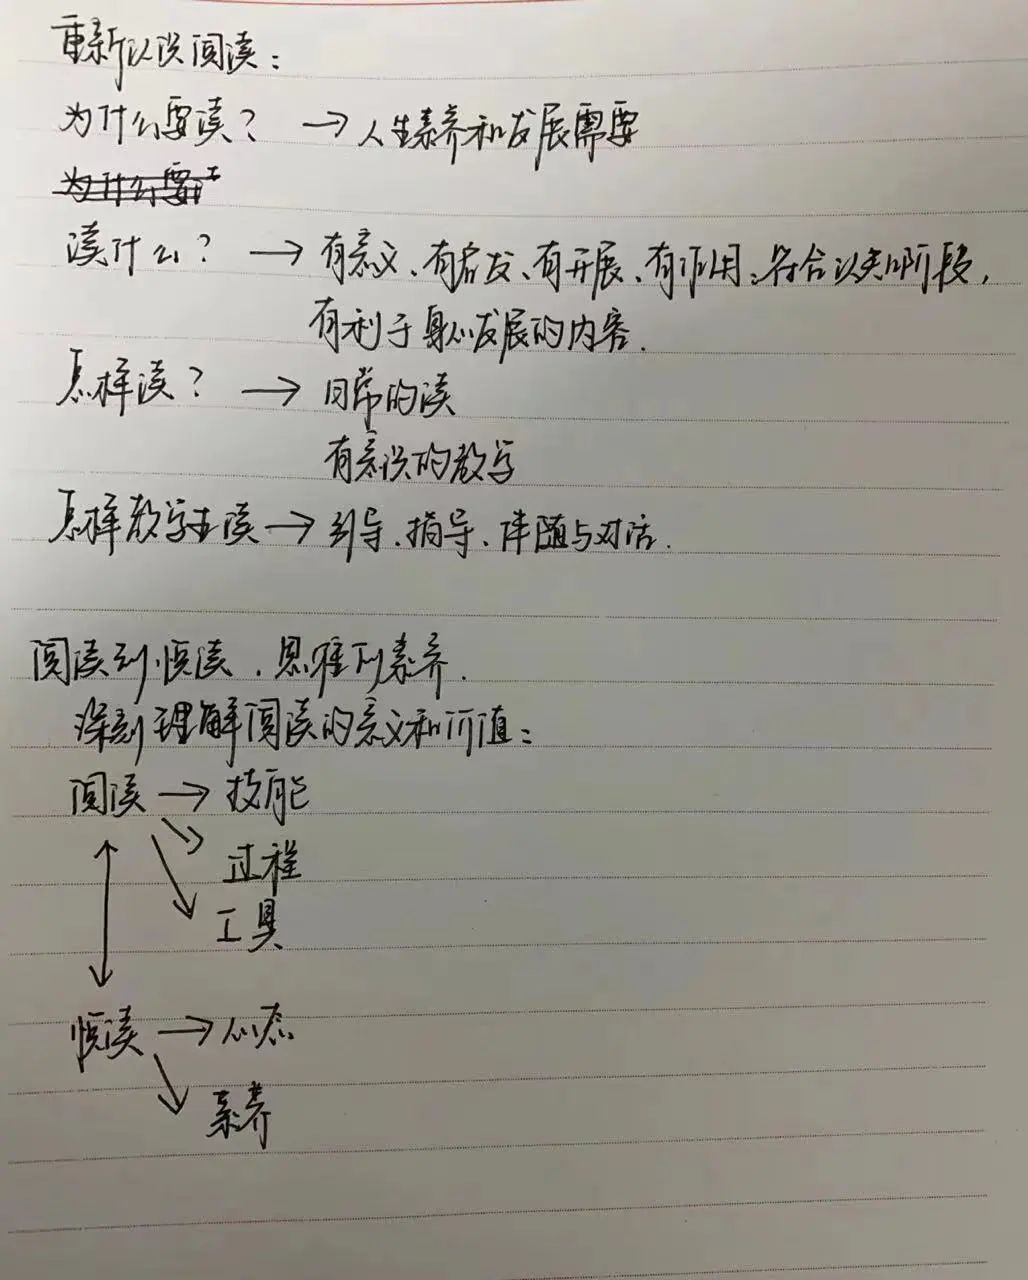 重新认识阅读：
为什么要读？ → 人生素养和发展需要
为什么要
读什么？ → 有意义、有启发、有开展、有作用、符合认知阶段，
有利于身心发展的内容.
怎样读？ → 日常的读
有意识的教学
怎样教学生读 → 引导、指导、伴随与对话.
阅读到悦读，思维到素养.
深刻理解阅读的意义和价值：
阅读 → 技能
过程
工具
悦读 → 心态
素养